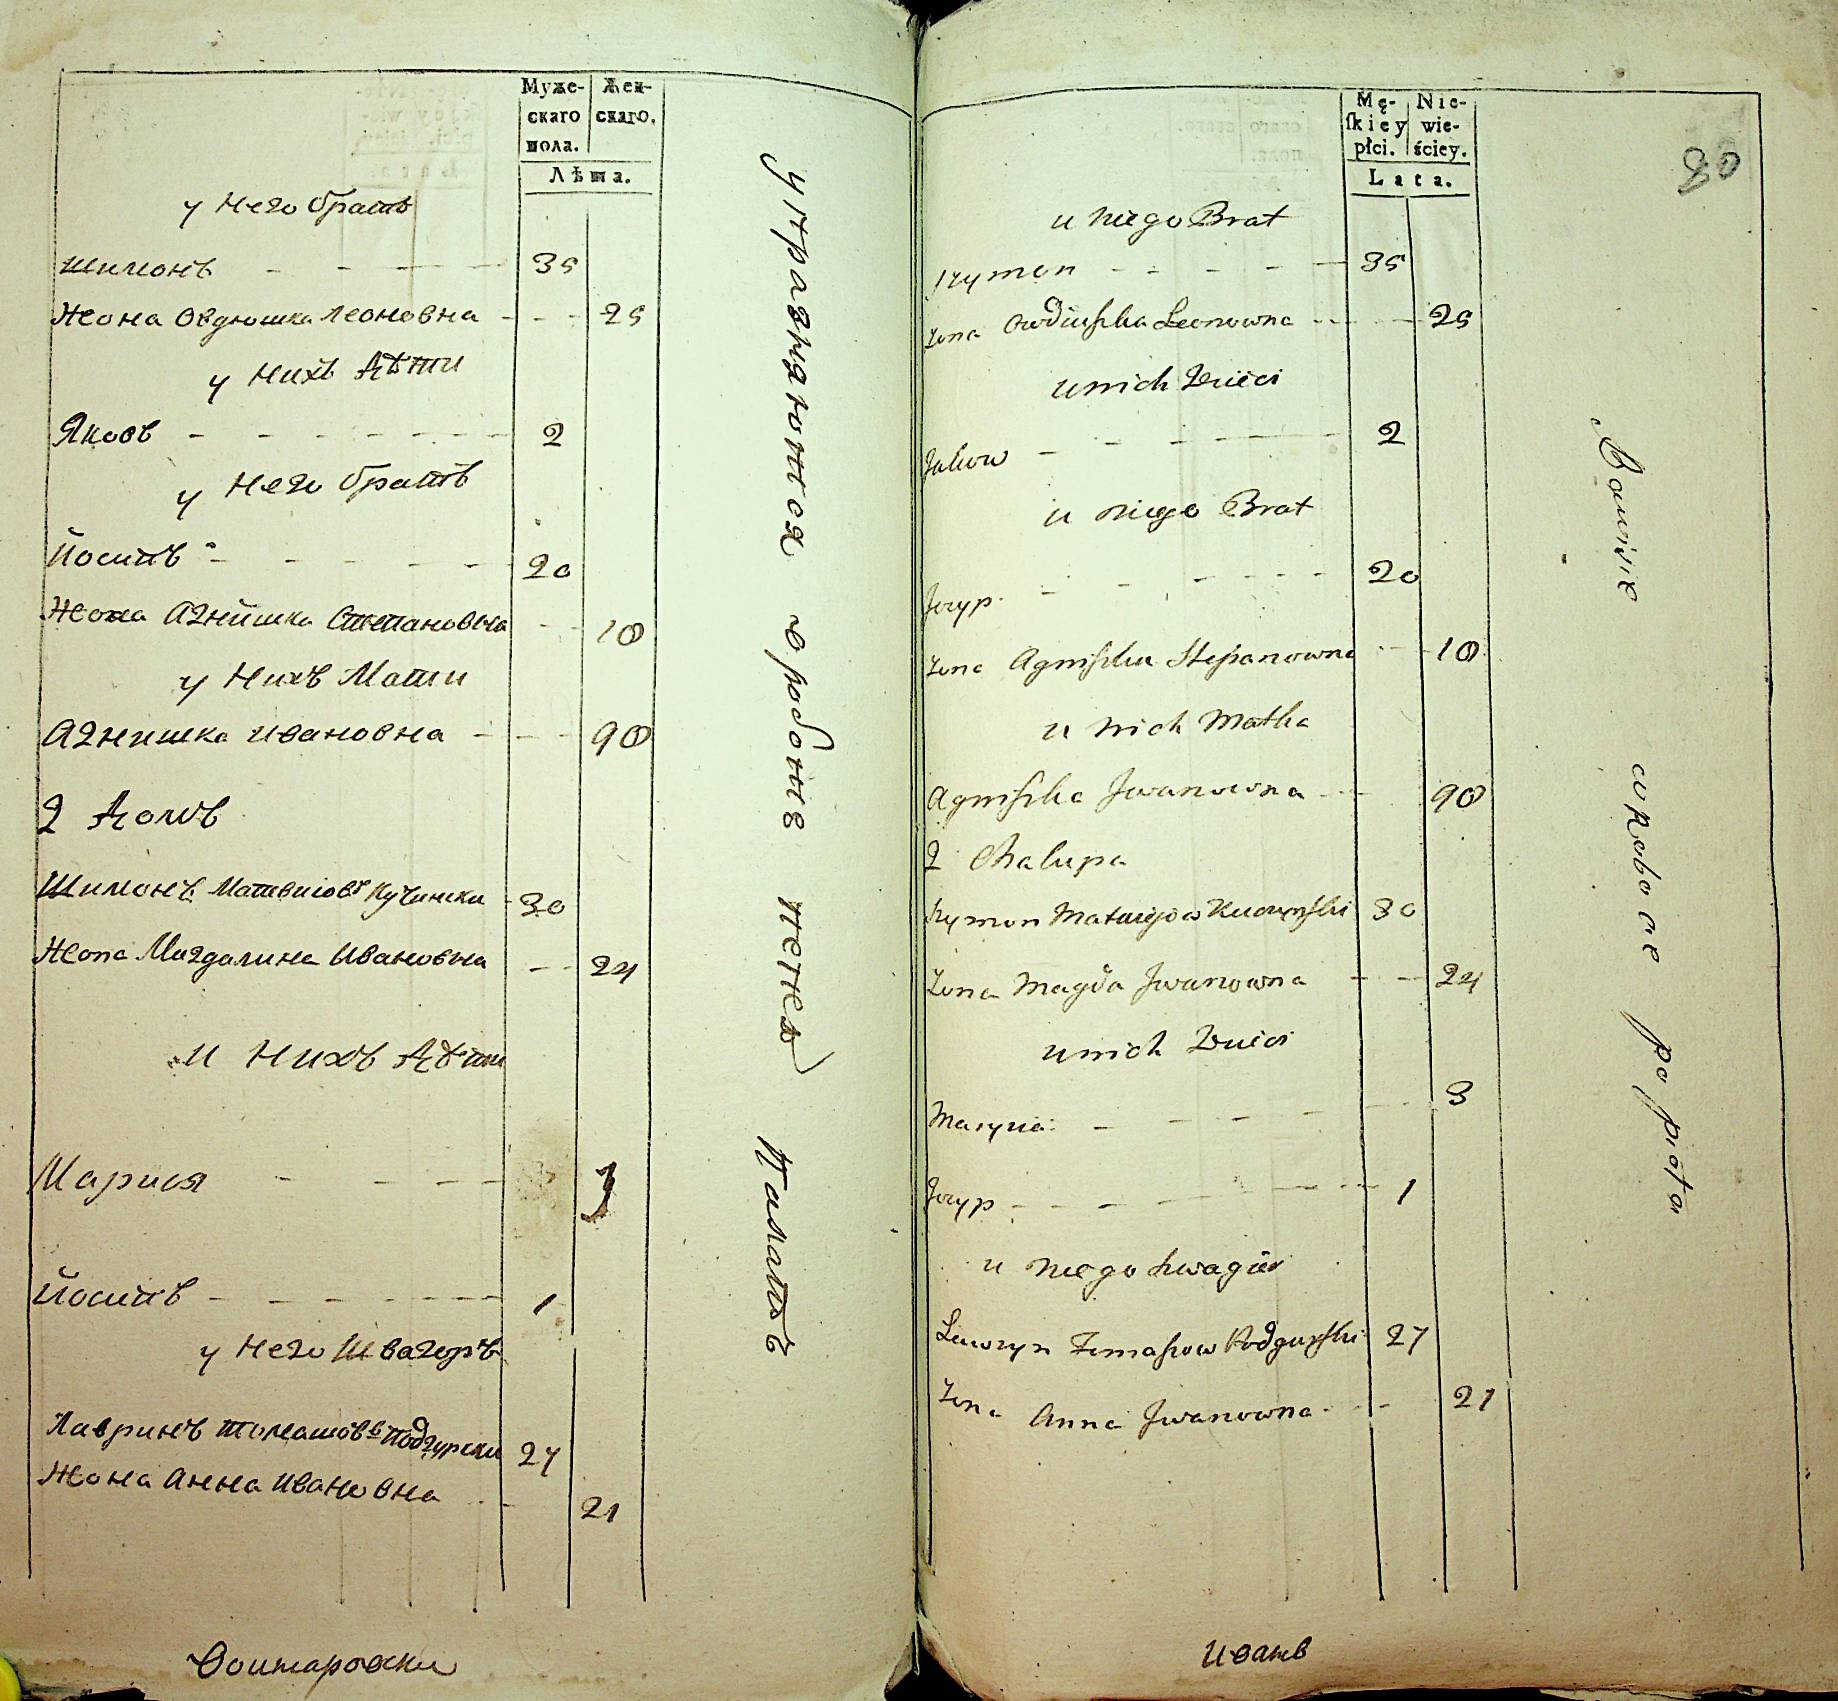 Муже-
скаго
пола.
Жен-
скаго.
Лѣта.
у него братъ
шимонъ 35
Жона Овдюшка Леоновна 25
у нихъ дѣти
Якобъ 2
у него братъ
Йосипъ 20
Жона Агнишка Степановна 18
у нихъ Мати
Агнишка ивановна 90
2 домъ
Шимонъ Матвиiовъ Кучински 30
Жона Магдалина Ивановна 24
и нихъ дѣти
Мария 3
Йосипъ 1
у него Швагеръ
Лавринъ томашовъ подгурски 27
Жона Анна Ивановна 21
упражняются
Mę-
ſkiey
płci.
Nie-
wie-
ściey.
Lata.
80
u niego Brat
szymon 35
żona owdiuſzka Leonowna 25
u nich Dzieci
Jakow 2
u niego Brat
Jozyp 20
żona Agniſzka Stepanowna 18
u nich Matka
Agniſzka Jwanowna 90
2 Chalupa
szymon Matwijow Kuczynſki 30
żona Magda Jwanowna 24
u nich Dzieci
Maryia 3
Jozyp 1
u niego szwagier
Lawryn Tomaſzow Podgurſki 27
żona Anna Jwanowna 21